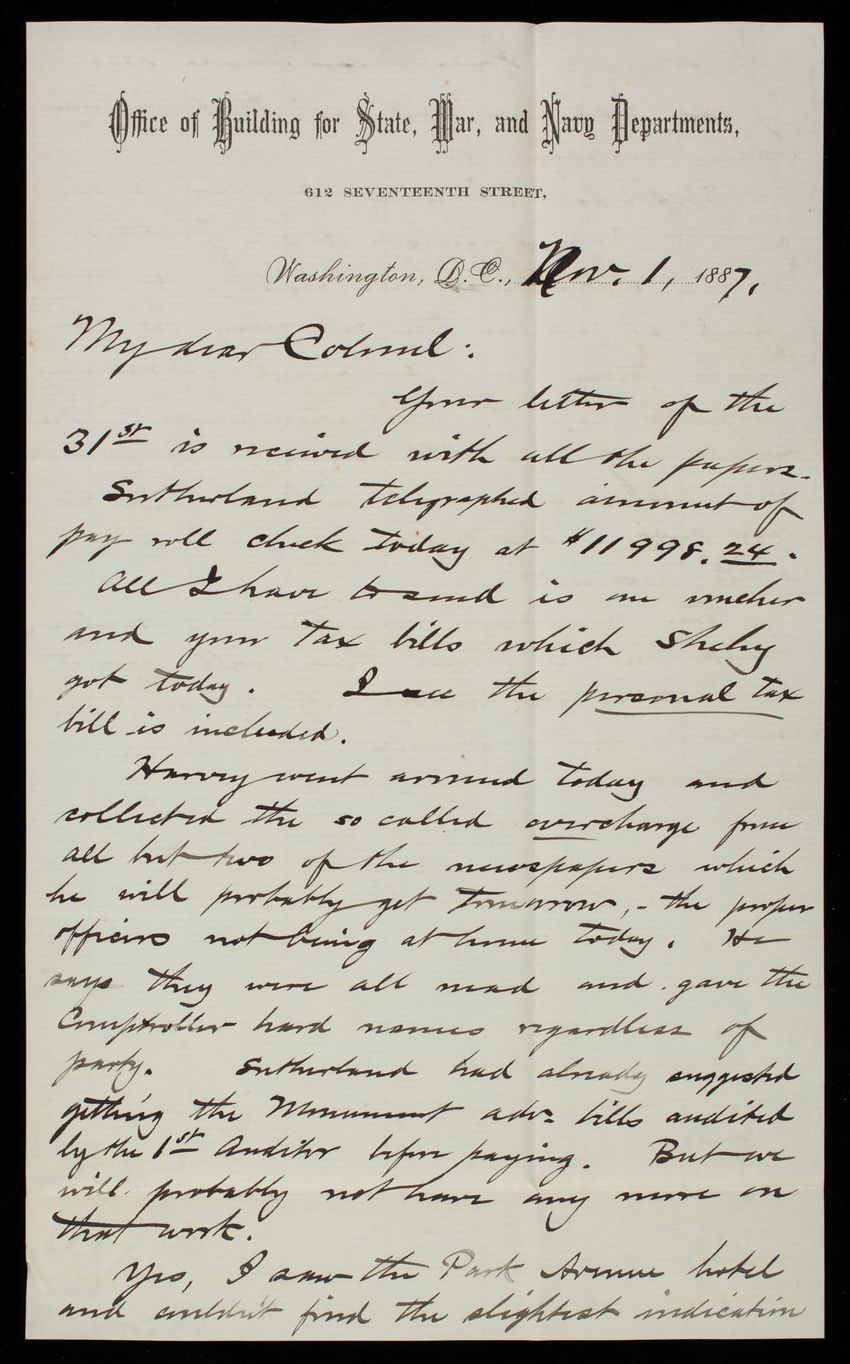 Office of Building for State, War, and Navy Departments,
612 SEVENTEENTH STREET,
Washington, D.C., Nov. 1, 1887,
My dear Colonel:
Your letter of the
31st is received with all the papers.
Sutherland telegraphed amount of
pay roll check today at $11998.24.
All I have to send is one voucher
and your tax bills which Sheby
got today. I see the personal tax
bill is included.
Harvey went around today and
collected the so called overcharge from
all but two of the newspapers which
he will probably get tomorrow, - the proper
officers not being at home today. He
says they were all mad and gave the
Comptroller hard names regardless of
party. Sutherland had already suggested
getting the Monument adv. bills audited
by the 1st Auditor before paying. But we
will probably not have any more on
that work.
Yes, I saw the Park Avenue hotel
and couldn't find the slightest indication